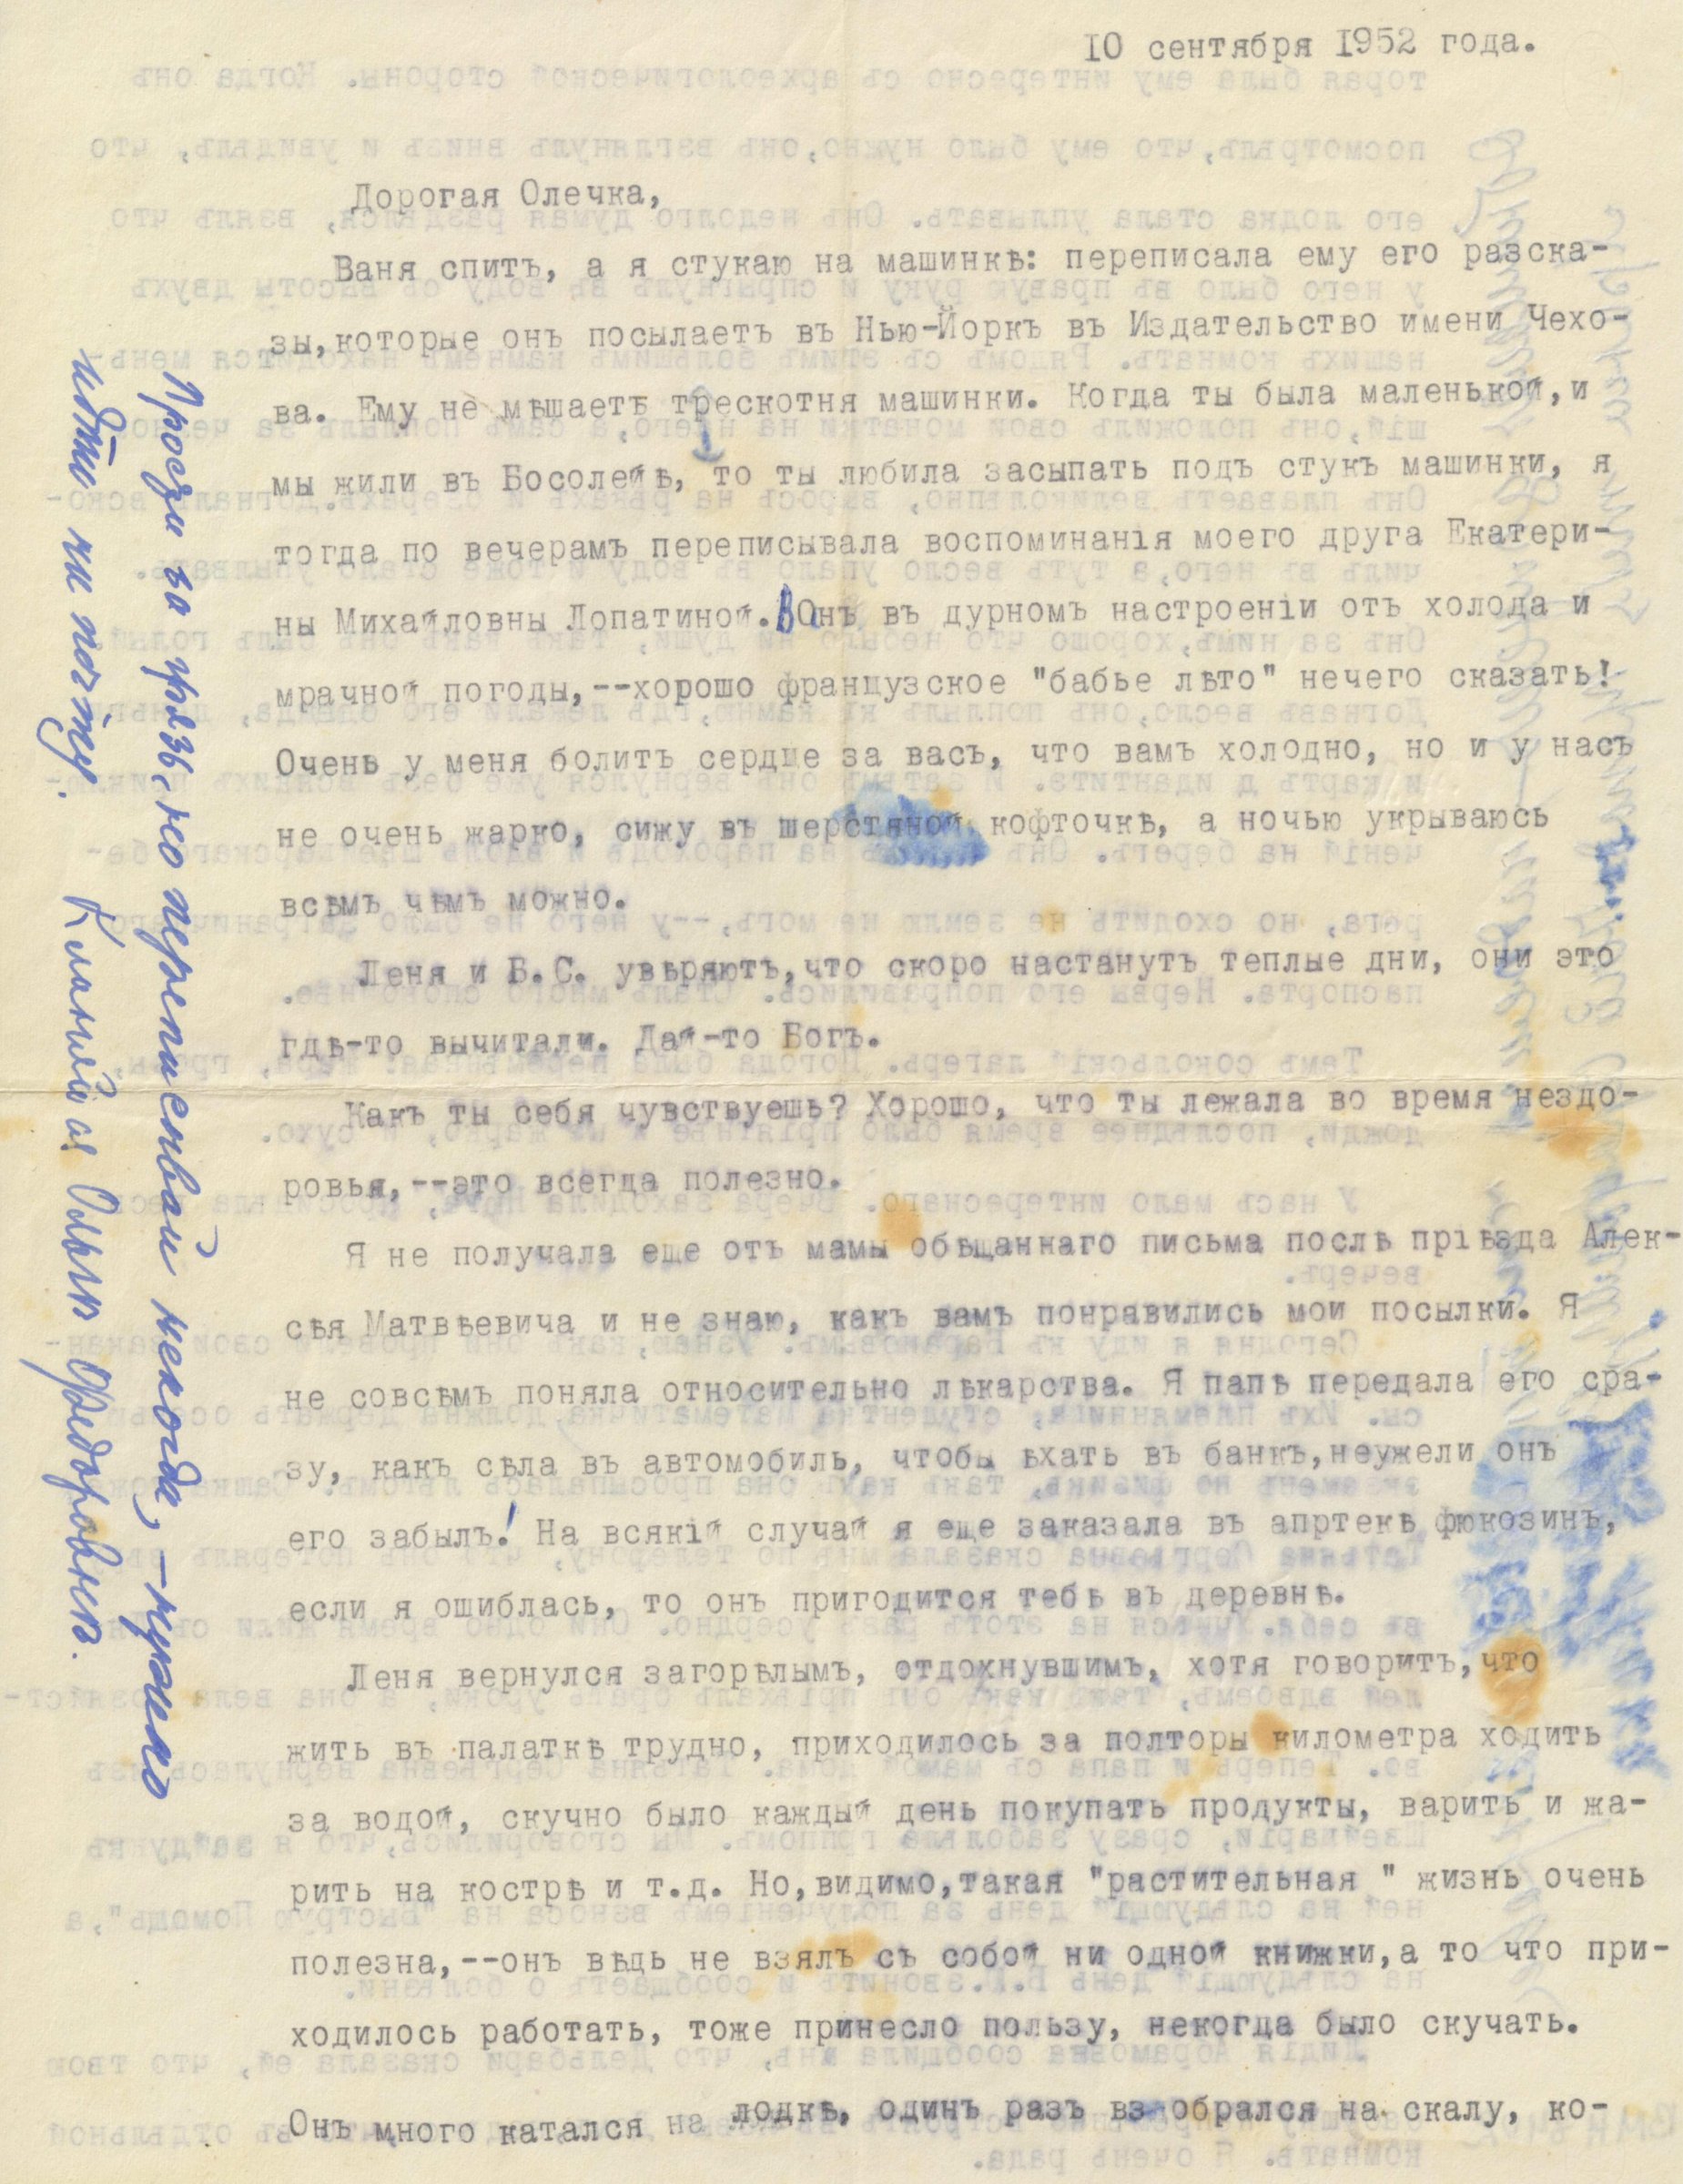 10 сентября 1952 года.
Дорогая Олечка,
Ваня спитъ, а я стукаю на машинкѣ: переписала ему его разска-
зы,которые онъ посылаетъ въ Нью-Йоркъ въ Издательство имени Чехо-
ва. Ему не мѣшаетъ трескотня машинки. Когда ты была маленькой,и
мы жили въ Босолейѣ, то ты любила засыпать подъ стукъ машинки, я
тогда по вечерамъ переписывала воспоминанія моего друга Екатери-
ны Михайловны Лопатиной. Онъ въ дурномъ настроеніи отъ холода и
мрачной погоды,--хорошо французское "бабье лѣто" нечего сказать!
Очень у меня болитъ сердце за васъ, что вамъ холодно, но и у насъ
не очень жарко, сижу въ шерстяной кофточкѣ, а ночью укрываюсь
всѣмъ чѣмъ можно.
Леня и Б.С. увѣряютъ,что скоро настанутъ теплые дни, они это
гдѣ-то вычитали. Дай-то Богъ.
Какъ ты себя чувствуешь? Хорошо, что ты лежала во время нездо-
ровья,--это всегда полезно.
Я не получала еще отъ мамы обѣщаннаго письма послѣ пріѣзда Алек-
сѣя Матвѣевича и не знаю, какъ вамъ понравились мои посылки. Я
не совсѣмъ поняла относительно лѣкарства. Я папѣ передала его сра-
зу, какъ сѣла въ автомобиль, чтобы ѣхать въ банкъ,неужели онъ
его забылъ! На всякій случай я еще заказала въ апртекѣ фюкозинъ,
если я ошиблась, то онъ пригодится тебѣ въ деревнѣ.
Леня вернулся загорѣлымъ, отдохнувшимъ, хотя говоритъ,что
жить въ палаткѣ трудно, приходилось за полторы километра ходить
за водой, скучно было каждый день покупать продукты, варить и жа-
рить на кострѣ и т.д. Но,видимо,такая "растительная " жизнь очень
полезна,--онъ вѣдь не взялъ съ собой ни одной книжки,а то что при-
ходилось работать, тоже принесло пользу, некогда было скучать.
Онъ много катался на лодкѣ, одинъ разъ взобрался на скалу, ко-
Прости за грязь, но переписывай некогда, – нужно
идти на почту. Кланяйся Ольге Федоровне.